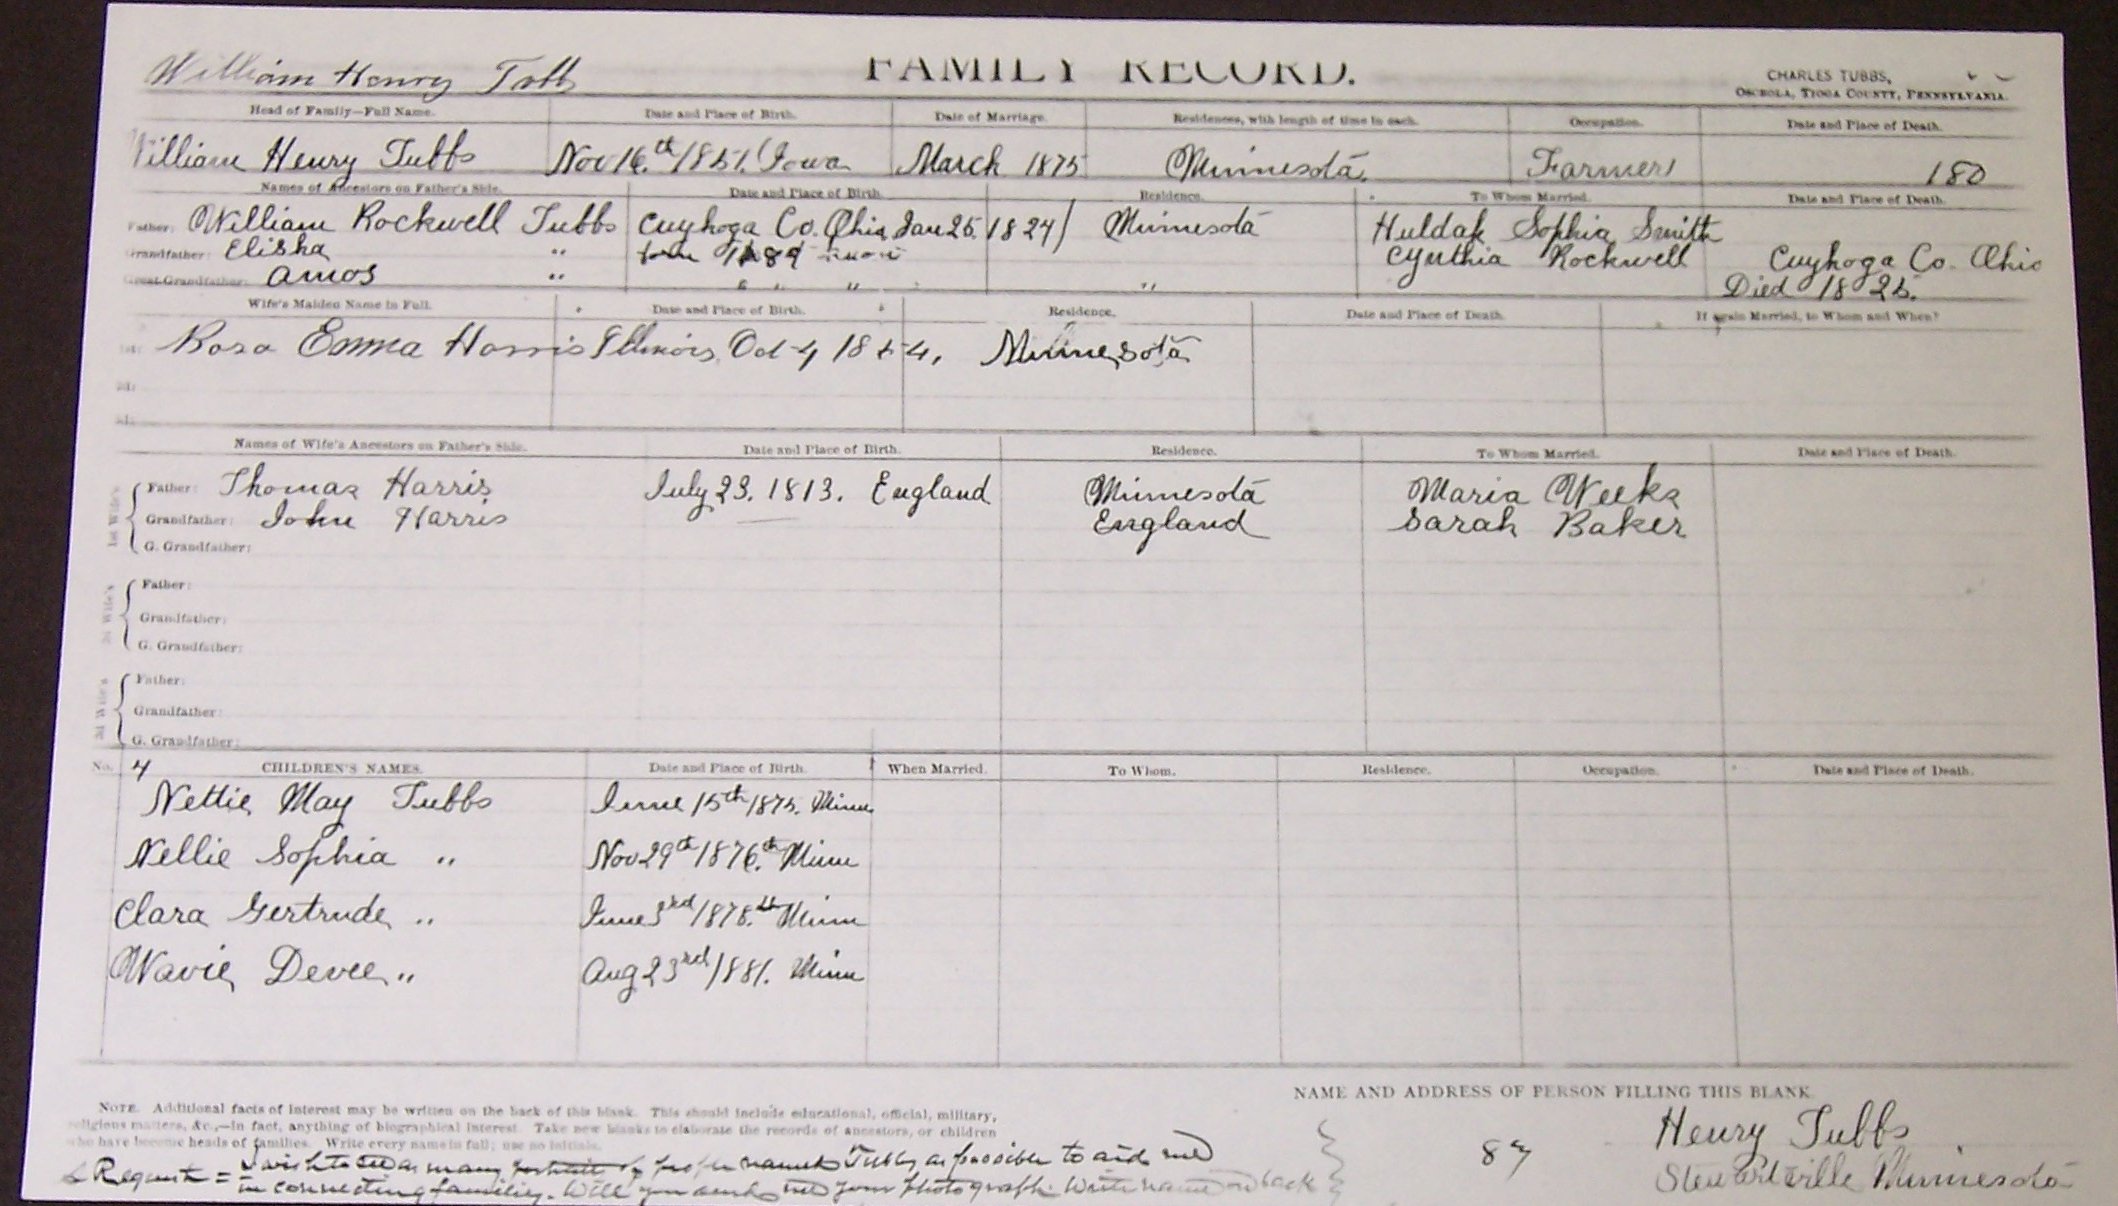 William Henry Tubbs FAMILY RECORD. CHARLES TUBBS,
OSCEOLA, TIOGA COUNTY, PENNSYLVANIA.
Head of Family—Full Name. Date and Place of Birth. Date of Marriage. Residences, with length of time in each. Occupation. Date and Place of Death.
William Henry Tubbs Nov 16.th 1851. Iowa March 1875 Minnesota. Farmer 180
Names of Ancestors on Father's Side. Date and Place of Birth. Residence. To Whom Married. Date and Place of Death.
Father: William Rockwell Tubbs Cuyhoga Co. Ohio Jan 25, 1824 Minnesota Huldah Sophia Smith
Grandfather: Elisha " 1789 Cynthia Rockwell Cuyhoga Co. Ohio
Great-Grandfather: Amos " " " " Died 1825.
Wife's Maiden Name in Full. Date and Place of Birth. Residence. Date and Place of Death. If again Married, to Whom and When?
1st: Rosa Emma Harris Illinois Oct 4 1854, Minnesota
2d:
3d:
Names of Wife's Ancestors on Father's Side. Date and Place of Birth. Residence. To Whom Married. Date and Place of Death.
1st Wife's
Father: Thomas Harris July 23. 1813. England Minnesota Maria Weeks
Grandfather: John Harris England Sarah Baker
G. Grandfather:
2d Wife's
Father:
Grandfather:
G. Grandfather:
3d Wife's
Father:
Grandfather:
G. Grandfather:
No. 4 CHILDREN'S NAMES. Date and Place of Birth. When Married. To Whom. Residence. Occupation. Date and Place of Death.
Nettie May Tubbs June 15th 1875. Minn
Nellie Sophia " Nov 29th 1876.th Minn
Clara Gertrude " June 3rd 1878.th Minn
Wavie Devee " Aug 23rd 1881. Minn
NAME AND ADDRESS OF PERSON FILLING THIS BLANK.
NOTE. Additional facts of interest may be written on the back of this blank. This should include educational, official, military,
religious matters, &c.,—in fact, anything of biographical interest. Take new blanks to elaborate the records of ancestors, or children
who have become heads of families. Write every name in full; use no initials.
Henry Tubbs
87
Request = I wish to see as many portraits of people named Tubbs as possible to aid me
in connecting families. Will you send me your photograph. Write name on back
Stewartville Minnesota